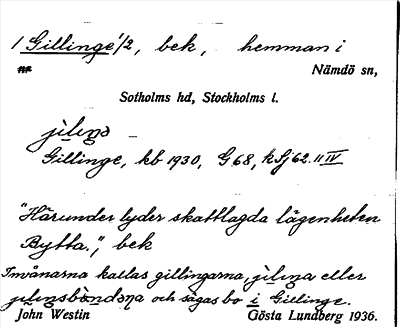 1 Gillinge 1/2, bek, hemman i
Nämdö sn,
Sotholms hd, Stockholms l.
jilıŋə
Gillinge, kb 1930, G 68, kSj 62. II IV
"Härunder lyder skattlagda lägenheten
Bytta.", bek
Invånarna kallas gillingarna, jilıŋa eller
jilıŋsbondəŋa och sägas bo i Gillinge.
John Westin Gösta Lundberg 1936.